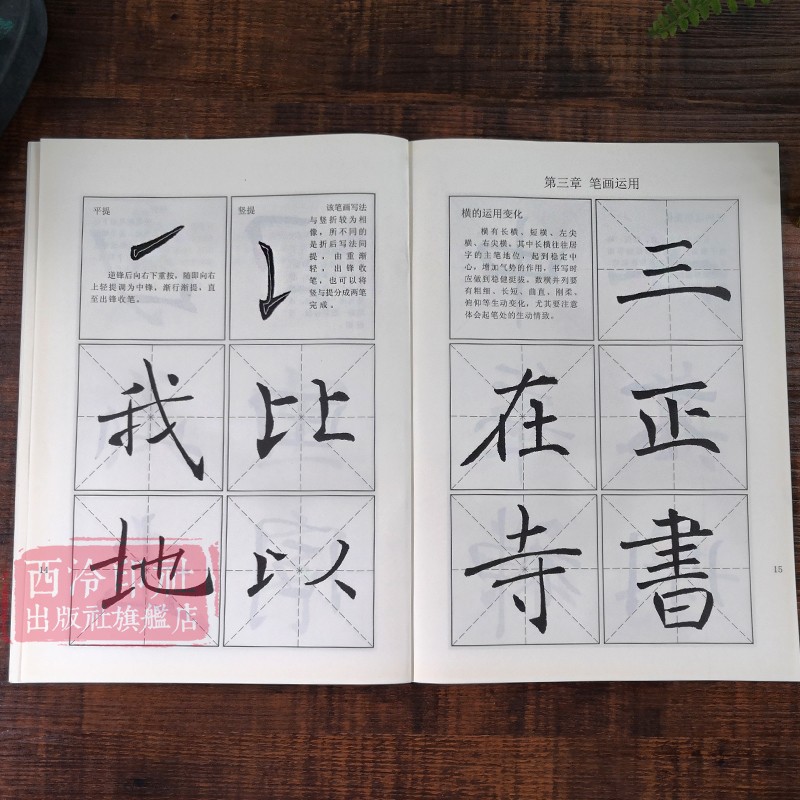 平提
逆锋后向右下重按，随即向右
上轻提调为中锋，渐行渐提，直
至出锋收笔。
竖提
该笔画写法
与竖折较为相
像，所不同的
是折后写法同
提，由重渐
轻，出锋收
笔，也可以将
竖与提分成两笔
完成。
我
比
地
以
14
西泠印社
出版社旗艦店
第三章 笔画运用
横的运用变化
横有长横、短横、左尖
横、右尖横。其中长横往往居
字的主笔地位，起到稳定中
心，增加气势的作用，书写时
应做到稳健挺拔。数横并列要
有粗细、长短、曲直、刚柔、
俯仰等生动变化，尤其要注意
体会起笔处的生动情致。
三
在
正
寺
書
15